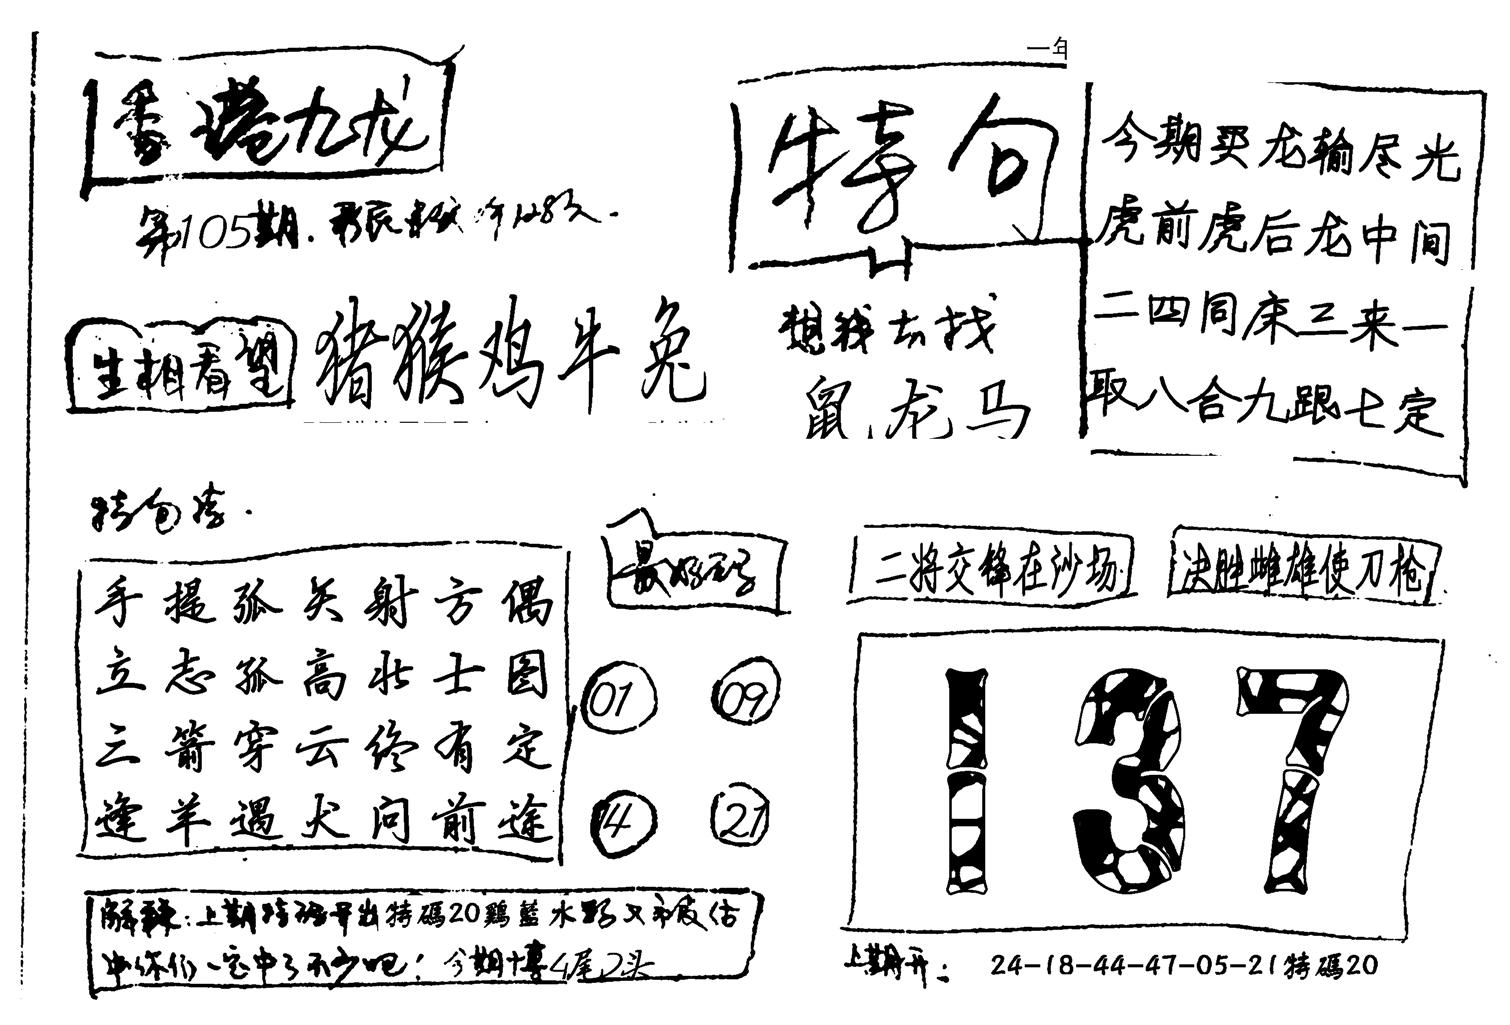 香港九龙
第105期.
生相看望
猪猴鸡牛兔
一年
特句
想我去找
鼠龙马
今期买龙输尽光
虎前虎后龙中间
二四同床三来一
取八合九跟七定
特包
手提弧矢射方偶
立志孤高壮士图
三箭穿云终有定
逢羊遇犬问前途
最好
01
09
14
21
二将交锋在沙场
决胜雌雄使刀枪
137
解释:上期特码开出特碼20鷄藍水野又被估
中你们一定中了不少吧!今期博4尾2头
上期开:24-18-44-47-05-21特碼20